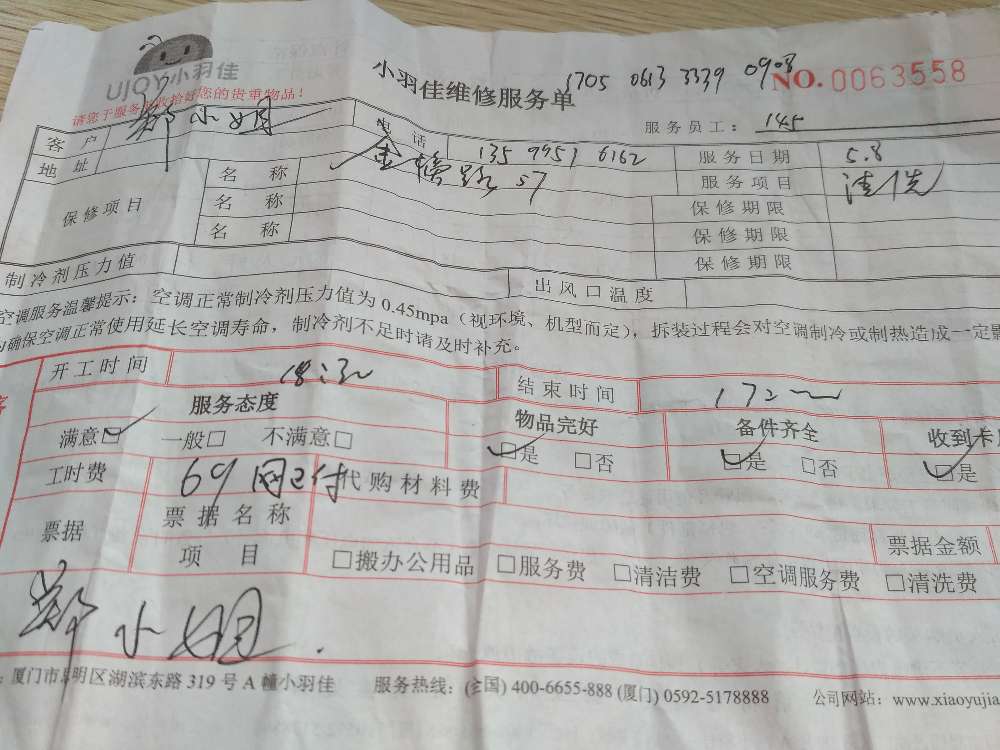 UJOY小羽佳
请您于服务前收拾好您的贵重物品!
小羽佳维修服务单
1705 0613 3339 0908
NO.0063558
服务员工: 145
客户 郑小姐 电话 135 9995 6162 服务日期 5.8
地址 金榜路57 服务项目 清洗
保修项目 名称 保修期限
名称 保修期限
名称 保修期限
制冷剂压力值 出风口温度
空调服务温馨提示:空调正常制冷剂压力值为0.45mpa(视环境、机型而定),拆装过程会对空调制冷或制热造成一定
确保空调正常使用延长空调寿命,制冷剂不足时请及时补充。
开工时间 结束时间
服务态度 物品完好 备件齐全 收到卡
满意☑ 一般□ 不满意□ ☑是 □否 ☑是 □否 ☑是
工时费 69 网已付 代购材料费
票据 票据名称 票据金额
项目 □搬办公用品 □服务费 □清洁费 □空调服务费 □清洗费
郑小姐.
厦门市思明区湖滨东路319号A幢小羽佳 服务热线:(全国) 400-6655-888 (厦门) 0592-5178888 公司网站:www.xiaoyujia